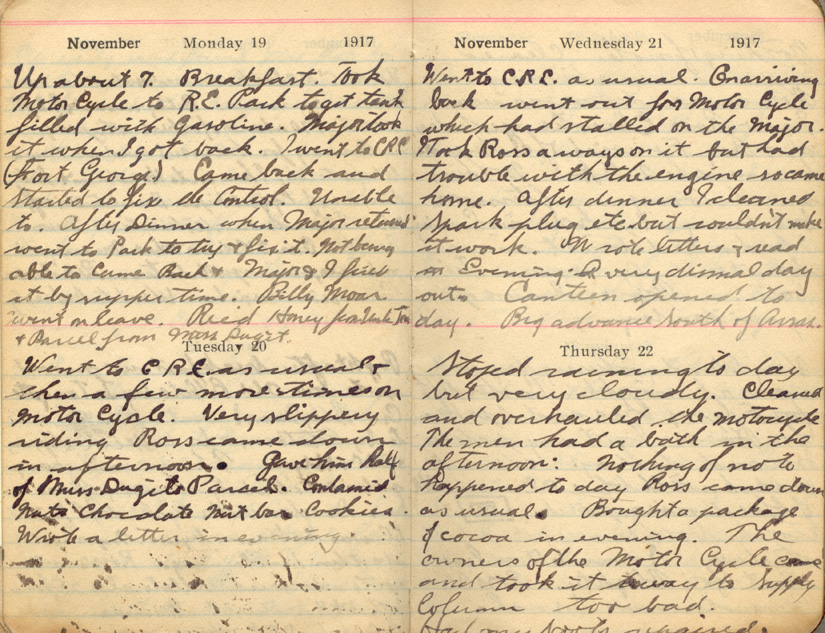 November Monday 19 1917
Up about 7. Breakfast. Took
Motor Cycle to R.E. Park to get tank
filled with Gasoline. Major took
it when I got back. I went to CRE
(Fort George) Came back and
started to fix the Control. Unable
to. After Dinner when Major returned
went to Park to try & fix it. Not being
able to Came Back & Major & I fixed
it by supper time. Billy Moar
went on leave. Recd Honey from Uncle Tom
& Parcel from Miss Dugit.
Tuesday 20
Went to C.R.E. as usual &
then a few more times on
Motor Cycle. Very slippery
riding Ross came down
in afternoon. Gave him Half
of Miss Dugits Parcel. Contained
Nuts Chocolate Nut bar Cookies.
Wrote a letter in evening.
November Wednesday 21 1917
Went to C.R.E. as usual. On arriving
back went out for Motor Cycle
which had stalled on the Major.
Took Ross a ways on it but had
trouble with the engine so came
home. After dinner I cleaned
spark plug etc but couldn't make
it work. Wrote letters & read
in Evening. A very dismal day
out. Canteen opened to
day. Big advance South of Arras.
Thursday 22
Stoped raining to day
but very cloudy. Cleaned
and overhauled the motocycle
The men had a bath in the
afternoon. Nothing of note
happened to day Ross came down
as usual. Bought a package
of cocoa in evening. The
owners of the Motor Cycle came
and took it away to Supply
Column too bad.
Had my boots repaired.